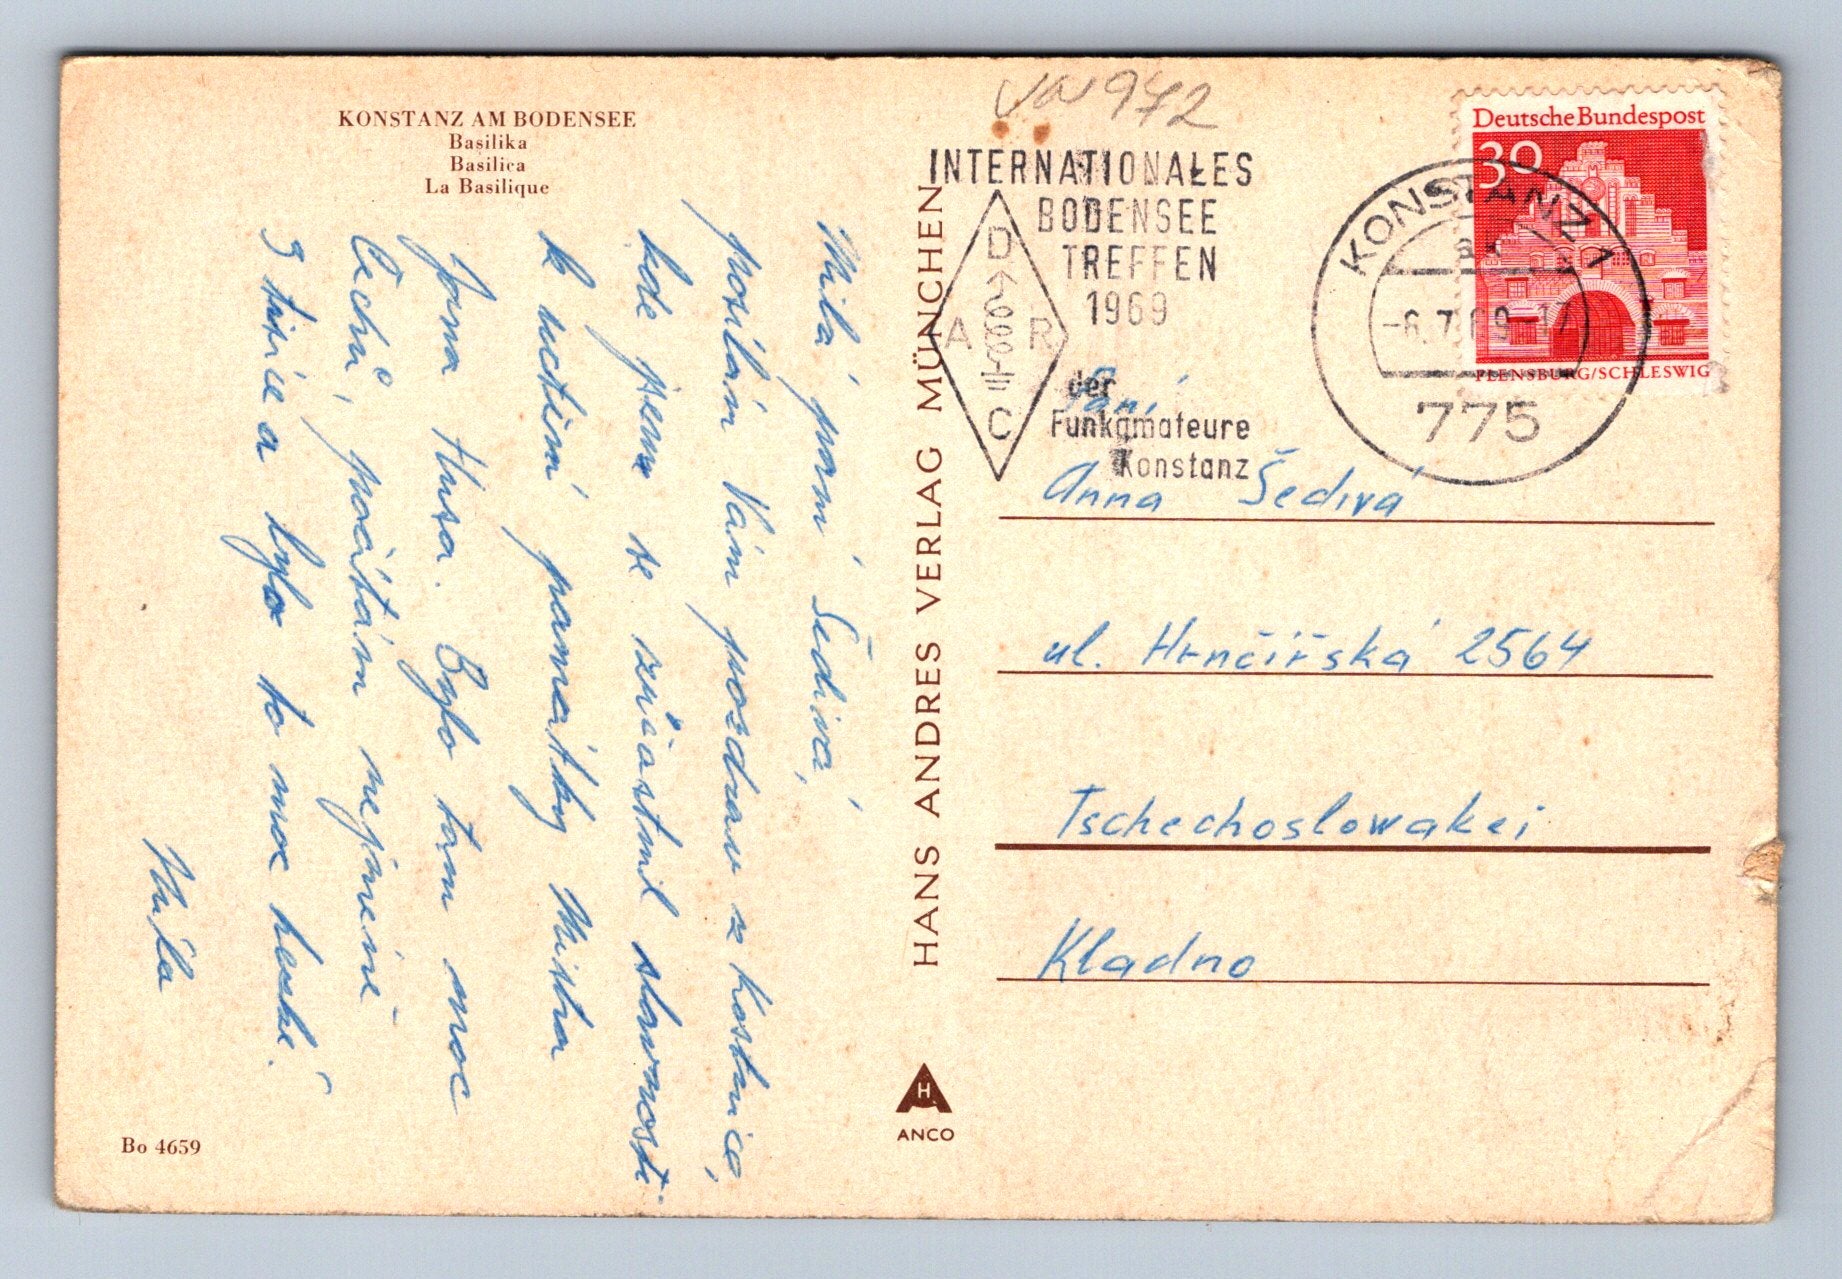 KONSTANZ AM BODENSEE
Basilika
Basilica
La Basilique
Milá paní Šedivá,
posílám Vám pozdrav z Kostnice,
kde jsem se zúčastnil slavnosti
k uctění památky Mistra
Jana Husa. Bylo tam moc
Čechů, počítám nejméně
3 tisíce a bylo to moc hezké.
Míla
Bo 4659
HANS ANDRES VERLAG MÜNCHEN
H
ANCO
972
INTERNATIONALES
BODENSEE
TREFFEN
1969
D
A R
C
der
Funkamateure
Konstanz
KONSTANZ 1
a
-6.7.69-17
775
Deutsche Bundespost
30
FLENSBURG/SCHLESWIG
Paní
Anna Šedivá
ul. Hrnčířská 2564
Tschechoslowakei
Kladno